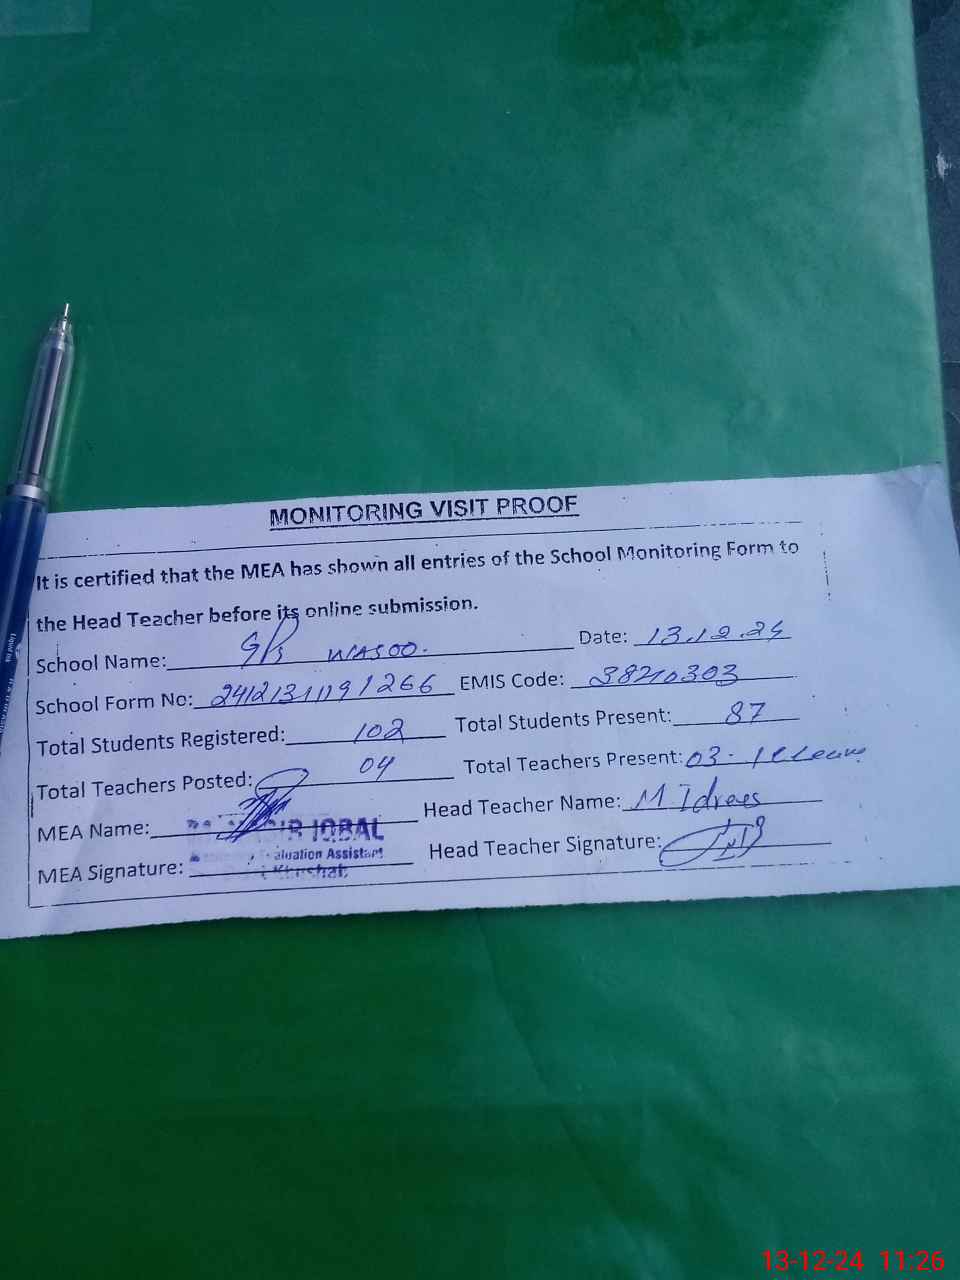 MONITORING VISIT PROOF
It is certified that the MEA has shown all entries of the School Monitoring Form to
the Head Teacher before its online submission.
School Name: GPS WASOO. Date: 13.12.24
School Form No: 2412131191266 EMIS Code: 38210303
Total Students Registered: 102 Total Students Present: 87
Total Teachers Posted: 04 Total Teachers Present: 03.
MEA Name: IQBAL Head Teacher Name: M Idrees
Evaluation Assistant
MEA Signature: Khushab Head Teacher Signature:
13-12-24 11:26